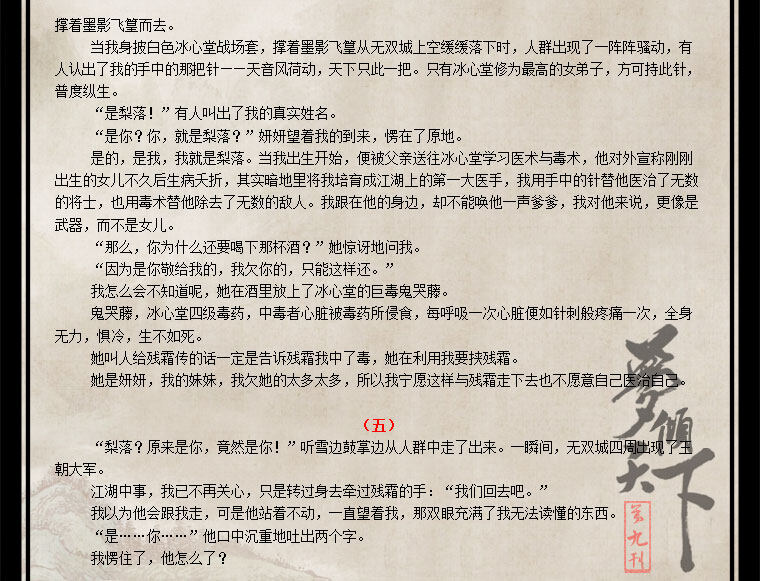 撑着墨影飞篁而去。
当我身披白色冰心堂战场套，撑着墨影飞篁从无双城上空缓缓落下时，人群出现了一阵阵骚动，有
人认出了我的手中的那把针－－天音风荷动，天下只此一把。只有冰心堂修为最高的女弟子，方可持此针，
普度纵生。
“是梨落！”有人叫出了我的真实姓名。
“是你？你，就是梨落？”妍妍望着我的到来，愣在了原地。
是的，是我，我就是梨落。当我出生开始，便被父亲送往冰心堂学习医术与毒术，他对外宣称刚刚
出生的女儿不久后生病夭折，其实暗地里将我培育成江湖上的第一大医手，我用手中的针替他医治了无数
的将士，也用毒术替他除去了无数的敌人。我跟在他的身边，却不能唤他一声爹爹，我对他来说，更像是
武器，而不是女儿。
“那么，你为什么还要喝下那杯酒？”她惊讶地问我。
“因为是你敬给我的，我欠你的，只能这样还。”
我怎么会不知道呢，她在酒里放上了冰心堂的巨毒鬼哭藤。
鬼哭藤，冰心堂四级毒药，中毒者心脏被毒药所侵食，每呼吸一次心脏便如针刺般疼痛一次，全身
无力，惧冷，生不如死。
她叫人给残霜传的话一定是告诉残霜我中了毒，她在利用我要挟残霜。
她是妍妍，我的妹妹，我欠她的太多太多，所以我宁愿这样与残霜走下去也不愿意自己医治自己。
（五）
“梨落？原来是你，竟然是你！”听雪边鼓掌边从人群中走了出来。一瞬间，无双城四周出现了王
朝大军。
江湖中事，我已不再关心，只是转过身去牵过残霜的手：“我们回去吧。”
我以为他会跟我走，可是他站着不动，一直望着我，那双眼充满了我无法读懂的东西。
“是……你……”他口中沉重地吐出两个字。
我愣住了，他怎么了？
梦倾天下
第九刊